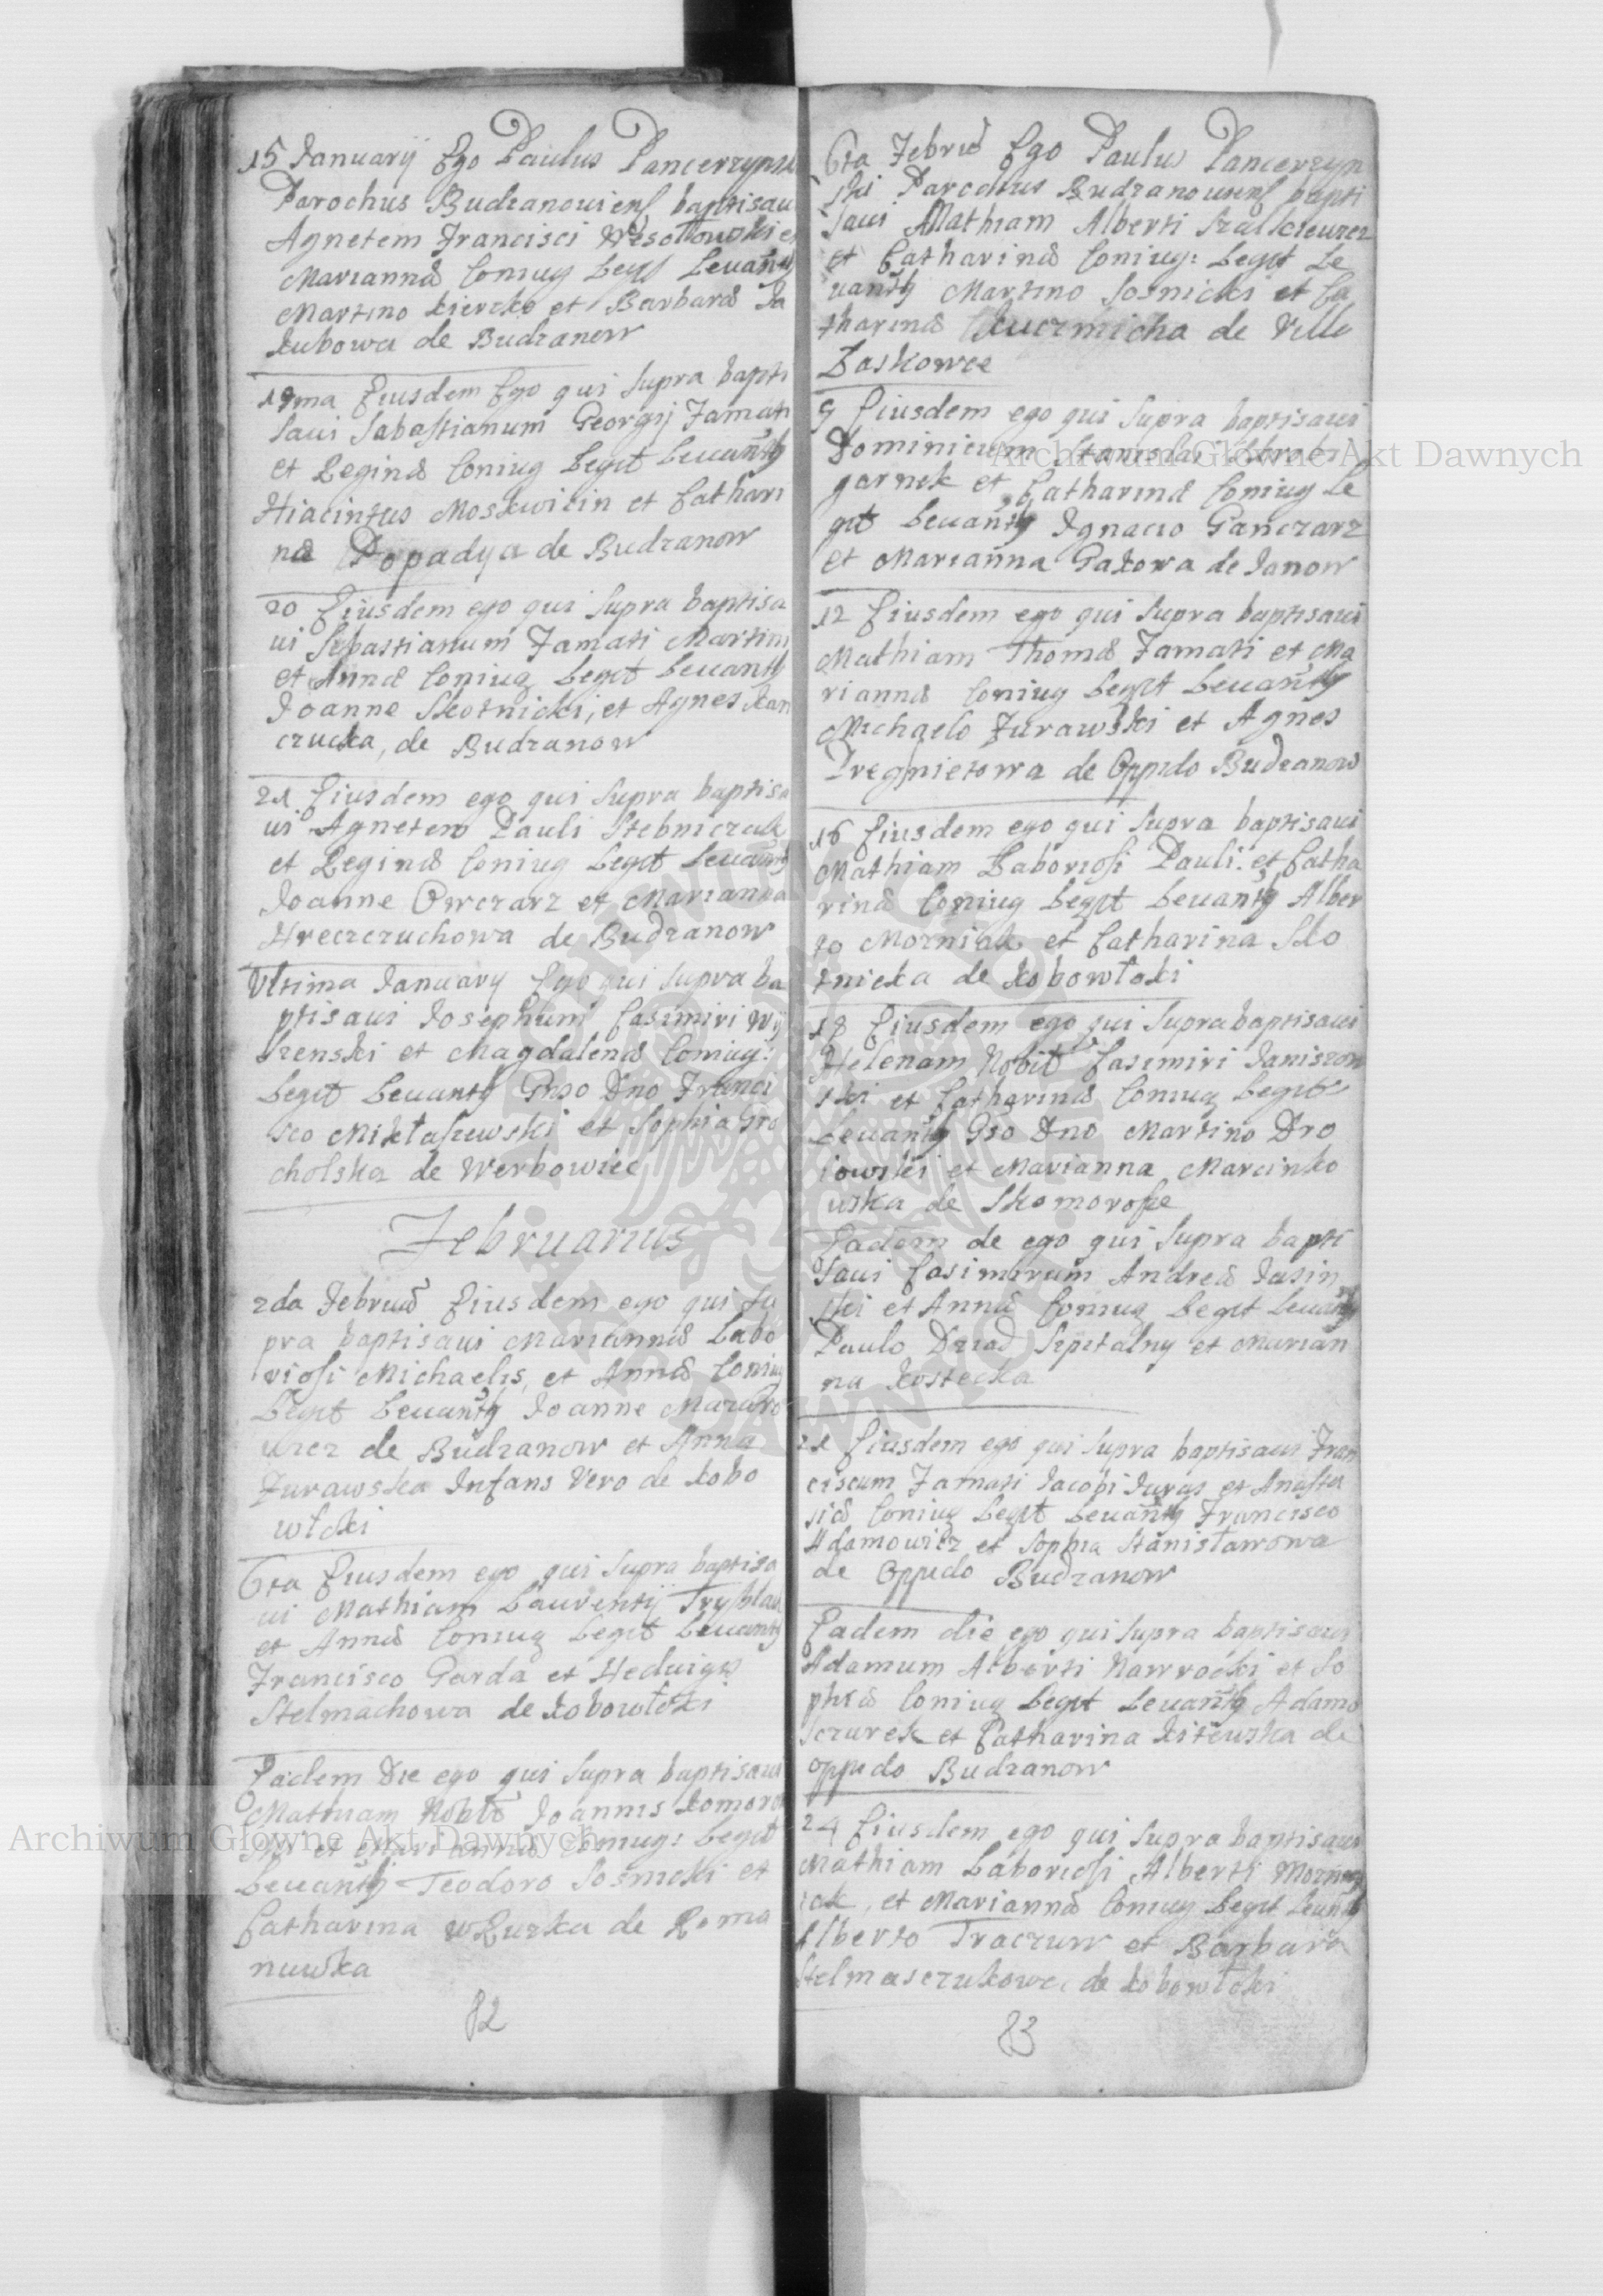 15 January Ego Paulus Pancerzynski
Parochus Budzanouiens baptisaui
Agnetem Francisci Wesołowski et
Mariannæ Coniug Legit Leuantib
Martino Kierzko et Barbara Ja
kubowa de Budzanow
Ejusdem Ego qui supra bapti
saui Sabastianum Georgij Famati
et Reginæ Coniug Legit Leuantib
Hiacintus Moskwitin et Cathari
na Popadya de Budzanow
20 Ejusdem ego qui supra baptisa
ui Sebastianum Famati Martini
et Annæ Coniug Legit Leuantib
Joanne Skotnicki, et Agnes Kan
czucka, de Budzanow
21 Ejusdem ego qui supra baptisa
ui Agnetem Pauli Stebniczuk
et Reginæ Coniug Legit Leuantib
Joanne Owczarz et Marianna
Hreczuchowa de Budzanow
Vltima January Ego qui supra ba
ptisaui Josephum Casimiri Wy
szenski et Magdalenæ Coniug:
Legit Leuantib Gnso Dno Franci
sco Mikłaszewski et Sophia Gro
cholska de Werbowiec
Februarius
2da Februa Ejusdem ego qui su
pra baptisaui Mariannã Labo
riosi Michaelis, et Annæ Coniug
Legit Leuantib Joanne Mazuro
de Budzanow et Anna
Zurawska Infans Vero de Kobo
włoki
6ta Ejusdem ego qui supra baptisa
ui Mathiam Laurentij
et Annæ Coniug Legit Leuantib
Francisco Garda et Heduigis
Stelmachowa de Kobowłoki
Eadem Die ego qui supra baptisaui
Mathiam Nobil Joannis Komoro
ski et Mariannæ Coniug: Legit
Leuantib Teodoro Sosnicki et
Catharina de Roma
nuwka
82
6ta Febru Ego Paulus Pancerzyn
ski Parochus Budzanouiens bapti
saui Mathiam Alberti
et Catharinæ Coniug: Legit Le
uantib Martino Sosnicki et Ca
tharina Kuczmicha de Villa
Laskowce
9 Ejusdem ego qui supra baptisaui
Dominicum Stanislai
garnek et Catharinæ Coniug Le
git Leuantib Ignacio Ganczarz
et Marianna Gaxowa de Janow
12 Ejusdem ego qui supra baptisaui
Mathiam Thomæ Famati et Ma
riannæ Coniug Legit Leuantib
Michaelo Zurawski et Agnes
de Oppido Budzanow
16 Ejusdem ego qui supra baptisaui
Mathiam Laboriosi Pauli et Catha
rinæ Coniug Legit Leuantib Alber
to Morniak et Catharina Sko
tnicka de Kobowłoki
18 Ejusdem ego qui supra baptisaui
Helenam Nobil Casimiri Janiszow
ski et Catharinæ Coniug Legit
Leuantib Gso Dno Martino Dro
iowski et Marianna Marcinko
uska de Skomorosze
Eadem de ego qui supra bapti
saui Casimirum Andreæ Jasin
ski et Annæ Coniug Legit Leuantib
Paulo Dziad Szpitalny et Marian
na Kostecka
21 Ejusdem ego qui supra baptisaui Fran
ciscum Famati Jacobi Juras et Anasta
siæ Coniug Legit Leuantib Francisco
Adamowicz et Sophia Stanisławowa
de Oppido Budzanow
Eadem die ego qui supra baptisaui
Adamum Alberti Nawrocki et So
phiæ Coniug Legit Leuantib Adamo
Sczurek et Catharina Kiteuska de
oppido Budzanow
24 Ejusdem ego qui supra baptisaui
Mathiam Laboriosi Alberti Morn
iak, et Mariannæ Coniug Legit Leuantib
Alberto Traczuw et Barbara
Stelmasczukowa de Kobowłoki
83
Archiwum Główne Akt Dawnych
Archiwum Główne Akt Dawnych